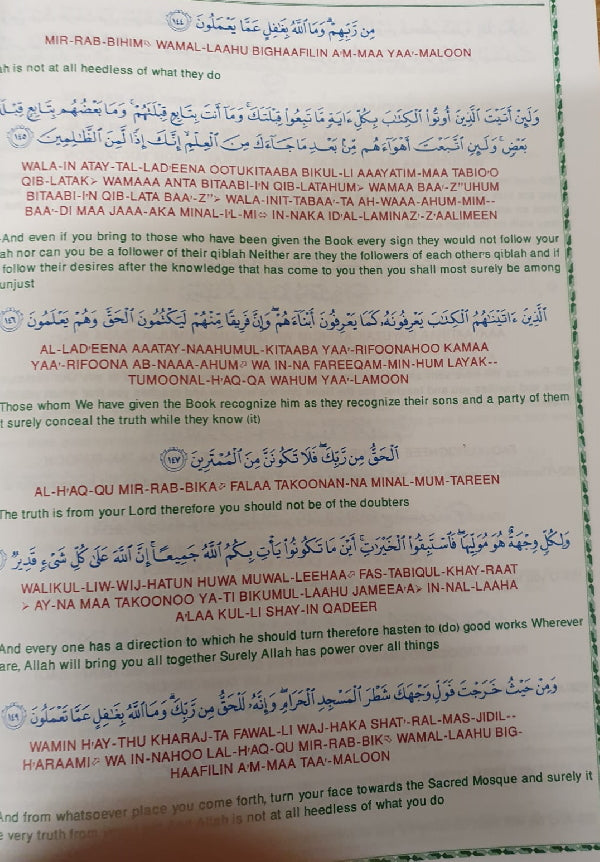 مِن رَّبِّهِمْ ۗ وَمَا اللَّهُ بِغَافِلٍ عَمَّا يَعْمَلُونَ ١٤٤
MIR-RAB-BIHIM WAMAL-LAAHU BIGHAAFILIN A'M-MAA YAA'-MALOON
ah is not at all heedless of what they do
وَلَئِنْ أَتَيْتَ الَّذِينَ أُوتُوا الْكِتَابَ بِكُلِّ ءَايَةٍ مَّا تَبِعُوا قِبْلَتَكَ ۚ وَمَا أَنتَ بِتَابِعٍ قِبْلَتَهُمْ ۚ وَمَا بَعْضُهُم بِتَابِعٍ قِبْلَةَ
بَعْضٍ ۚ وَلَئِنِ اتَّبَعْتَ أَهْوَاءَهُم مِّن بَعْدِ مَا جَاءَكَ مِنَ الْعِلْمِ ۙ إِنَّكَ إِذًا لَّمِنَ الظَّالِمِينَ ١٤٥
WALA-IN ATAY-TAL-LAD'EENA OOTUKITAABA BIKUL-LI AAAYATIM-MAA TABIO'O
QIB-LATAK> WAMAAA ANTA BITAABI-I'N QIB-LATAHUM> WAMAA BAA'-Z''UHUM
BITAABI-I'N QIB-LATA BAA'-Z''> WALA-INIT-TABAA'-TA AH-WAAA-AHUM-MIM--
BAA'-DI MAA JAAA-AKA MINAL-I'L-MI IN-NAKA ID'AL-LAMINAZ'-Z'AALIMEEN
And even if you bring to those who have been given the Book every sign they would not follow your
ah nor can you be a follower of their qiblah Neither are they the followers of each others qiblah and if
follow their desires after the knowledge that has come to you then you shall most surely be among
unjust
الَّذِينَ ءَاتَيْنَاهُمُ الْكِتَابَ يَعْرِفُونَهُ كَمَا يَعْرِفُونَ أَبْنَاءَهُمْ ۖ وَإِنَّ فَرِيقًا مِّنْهُمْ لَيَكْتُمُونَ الْحَقَّ وَهُمْ يَعْلَمُونَ ١٤٦
AL-LAD'EENA AAATAY-NAAHUMUL-KITAABA YAA'-RIFOONAHOO KAMAA
YAA'-RIFOONA AB-NAAA-AHUM WA IN-NA FAREEQAM-MIN-HUM LAYAK--
TUMOONAL-H'AQ-QA WAHUM YAA'-LAMOON
Those whom We have given the Book recognize him as they recognize their sons and a party of them
t surely conceal the truth while they know (it)
الْحَقُّ مِن رَّبِّكَ ۖ فَلَا تَكُونَنَّ مِنَ الْمُمْتَرِينَ ١٤٧
AL-H'AQ-QU MIR-RAB-BIKA FALAA TAKOONAN-NA MINAL-MUM-TAREEN
The truth is from your Lord therefore you should not be of the doubters
وَلِكُلٍّ وِجْهَةٌ هُوَ مُوَلِّيهَا ۖ فَاسْتَبِقُوا الْخَيْرَاتِ ۚ أَيْنَ مَا تَكُونُوا يَأْتِ بِكُمُ اللَّهُ جَمِيعًا ۚ إِنَّ اللَّهَ عَلَىٰ كُلِّ شَيْءٍ قَدِيرٌ
WALIKUL-LIW-WIJ-HATUN HUWA MUWAL-LEEHAA FAS-TABIQUL-KHAY-RAAT
> AY-NA MAA TAKOONOO YA-TI BIKUMUL-LAAHU JAMEEA'A> IN-NAL-LAAHA
A'LAA KUL-LI SHAY-IN QADEER
And every one has a direction to which he should turn therefore hasten to (do) good works Wherever
are, Allah will bring you all together Surely Allah has power over all things
وَمِنْ حَيْثُ خَرَجْتَ فَوَلِّ وَجْهَكَ شَطْرَ الْمَسْجِدِ الْحَرَامِ ۖ وَإِنَّهُ لَلْحَقُّ مِن رَّبِّكَ ۗ وَمَا اللَّهُ بِغَافِلٍ عَمَّا تَعْمَلُونَ ١٤٩
WAMIN H'AY-THU KHARAJ-TA FAWAL-LI WAJ-HAKA SHAT'-RAL-MAS-JIDIL--
H'ARAAMI WA IN-NAHOO LAL-H'AQ-QU MIR-RAB-BIK WAMAL-LAAHU BIG-
HAAFILIN A'M-MAA TAA'-MALOON
And from whatsoever place you come forth, turn your face towards the Sacred Mosque and surely it
e very truth from Allah is not at all heedless of what you do